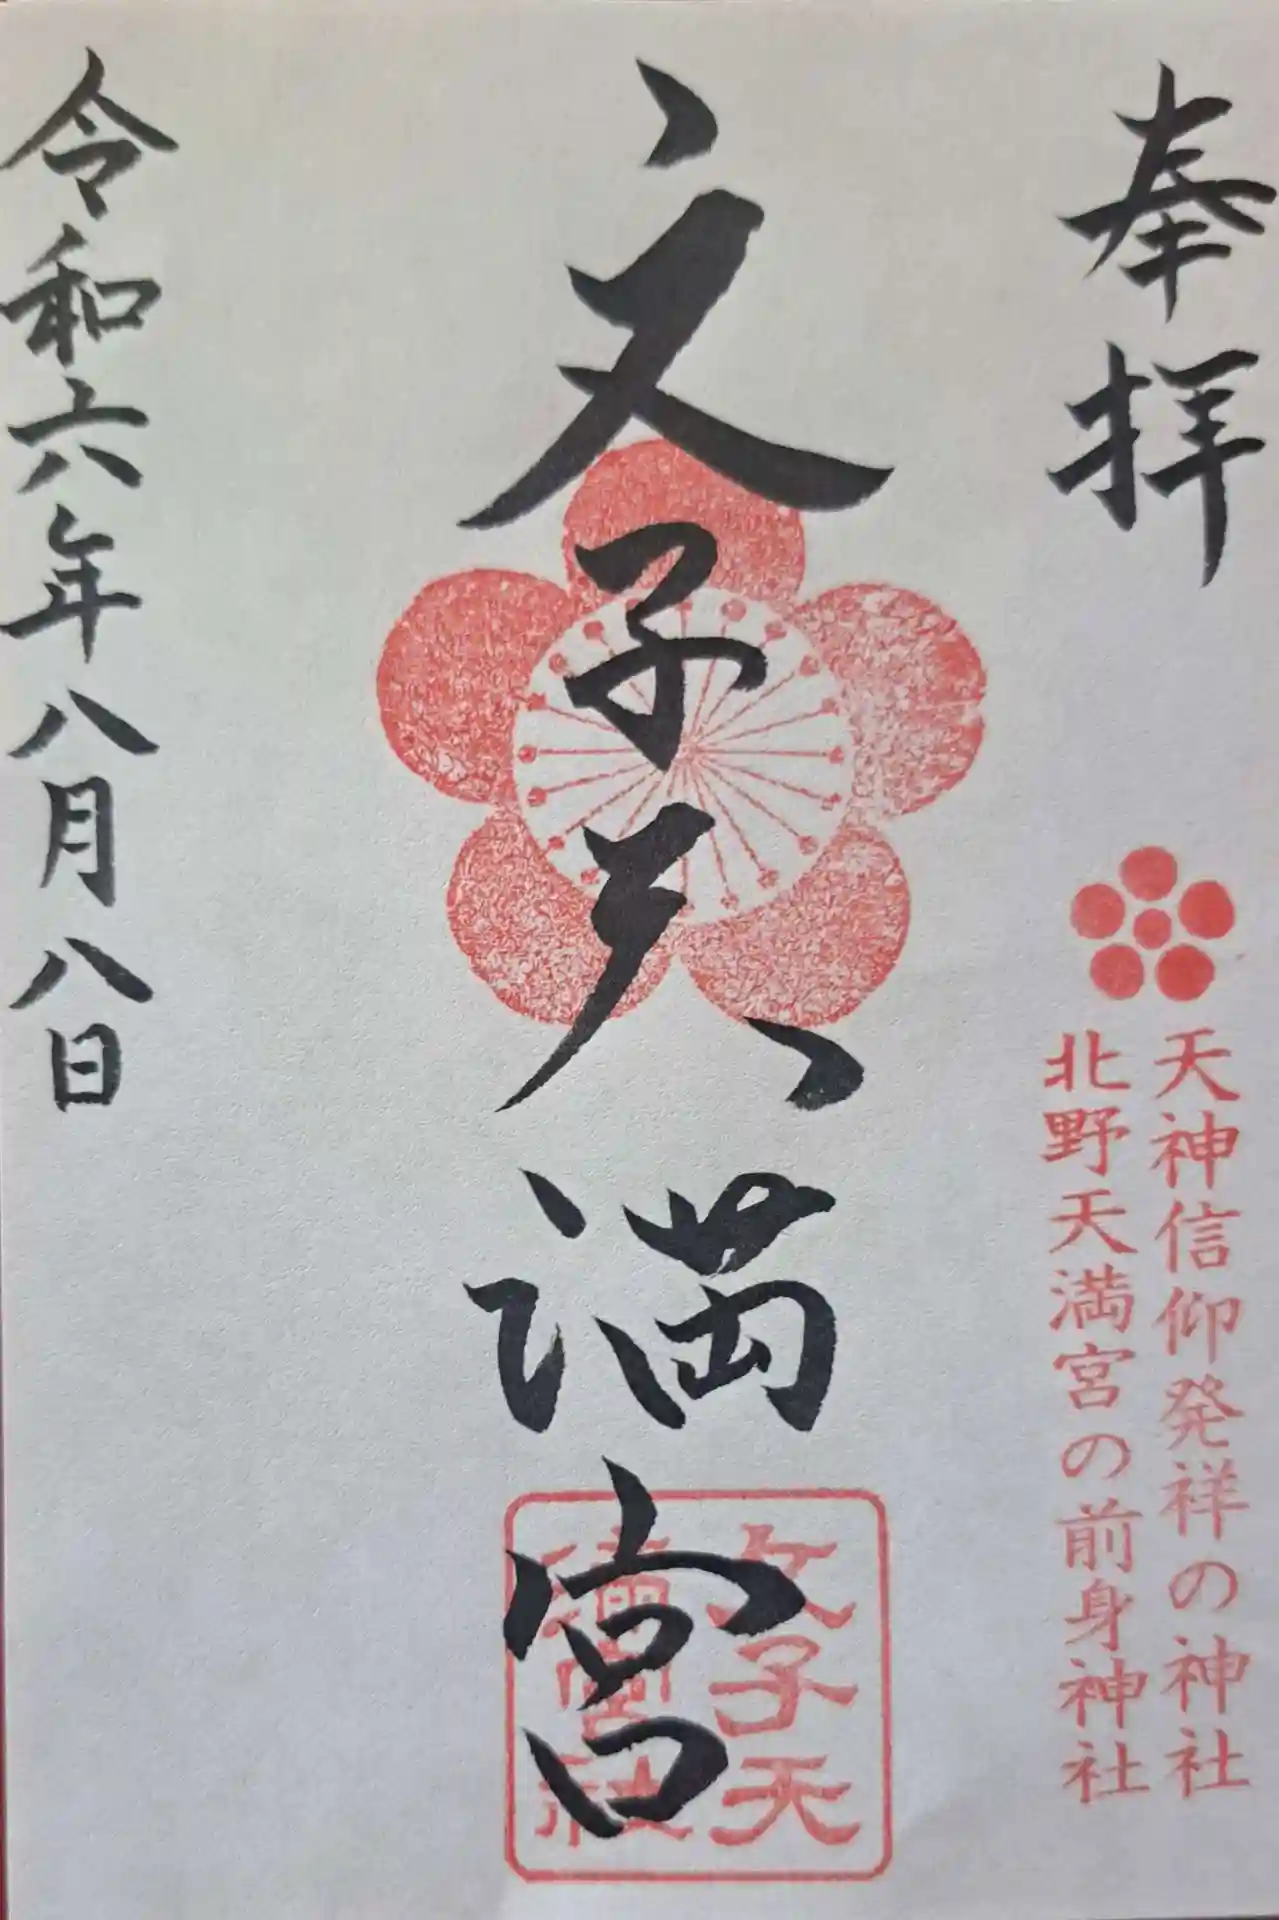 奉拝
天神信仰発祥の神社
北野天満宮の前身神社
文子天満宮
文子天
満宮社
令和六年八月八日